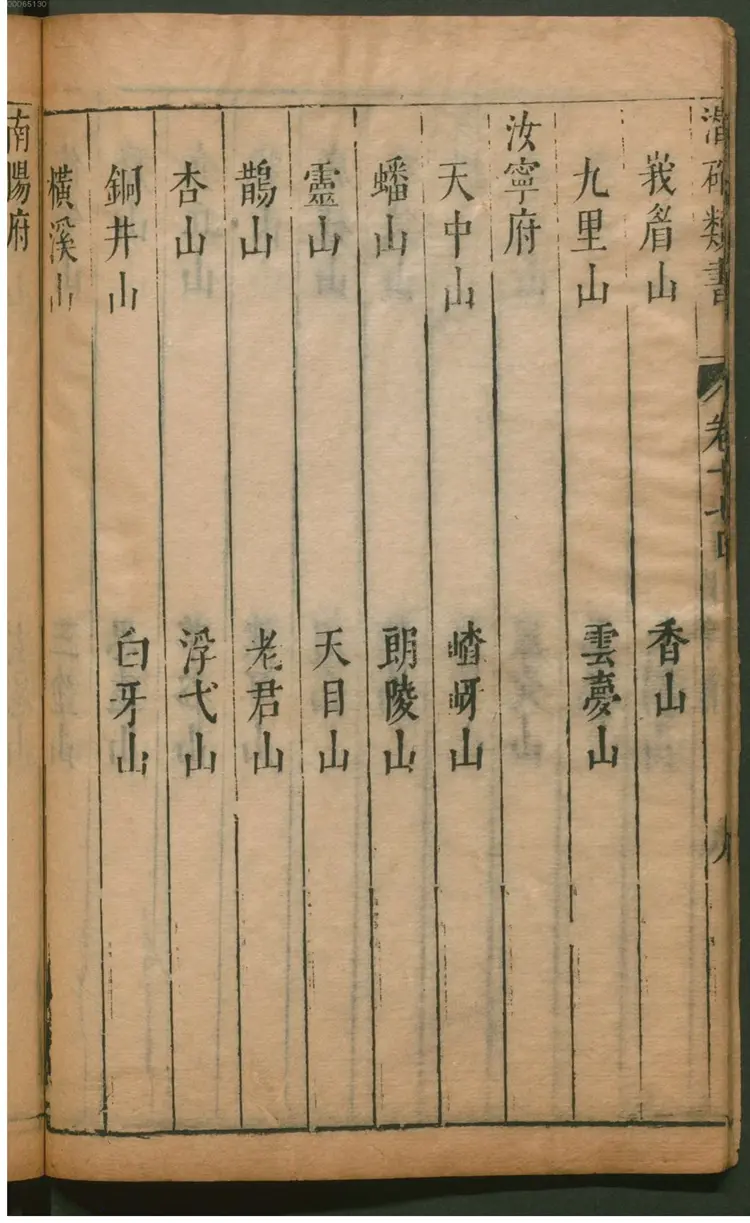 00065130
類書
卷十七
峩眉山 香山
九里山 雲夢山
汝寧府
天中山 嵖岈山
蟠山 朗陵山
靈山 天目山
鵲山 老君山
杏山 浮弋山
銅井山 白牙山
橫溪山
南陽府